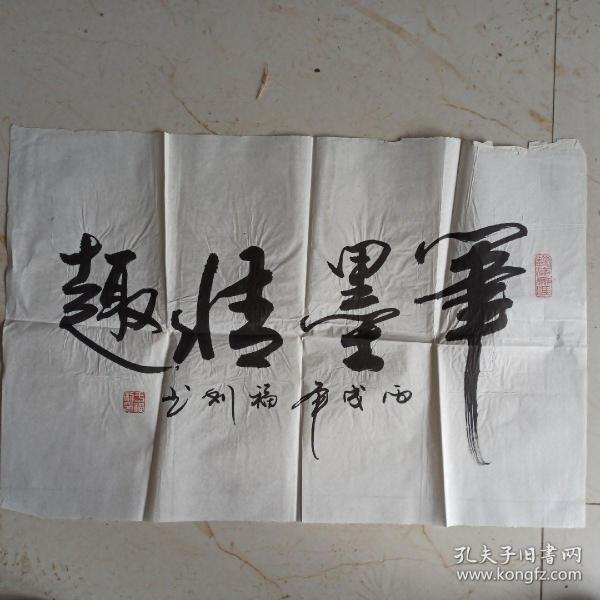 筆墨情趣
丙戌年福刚书
孔夫子旧書网
www.kongfz.com